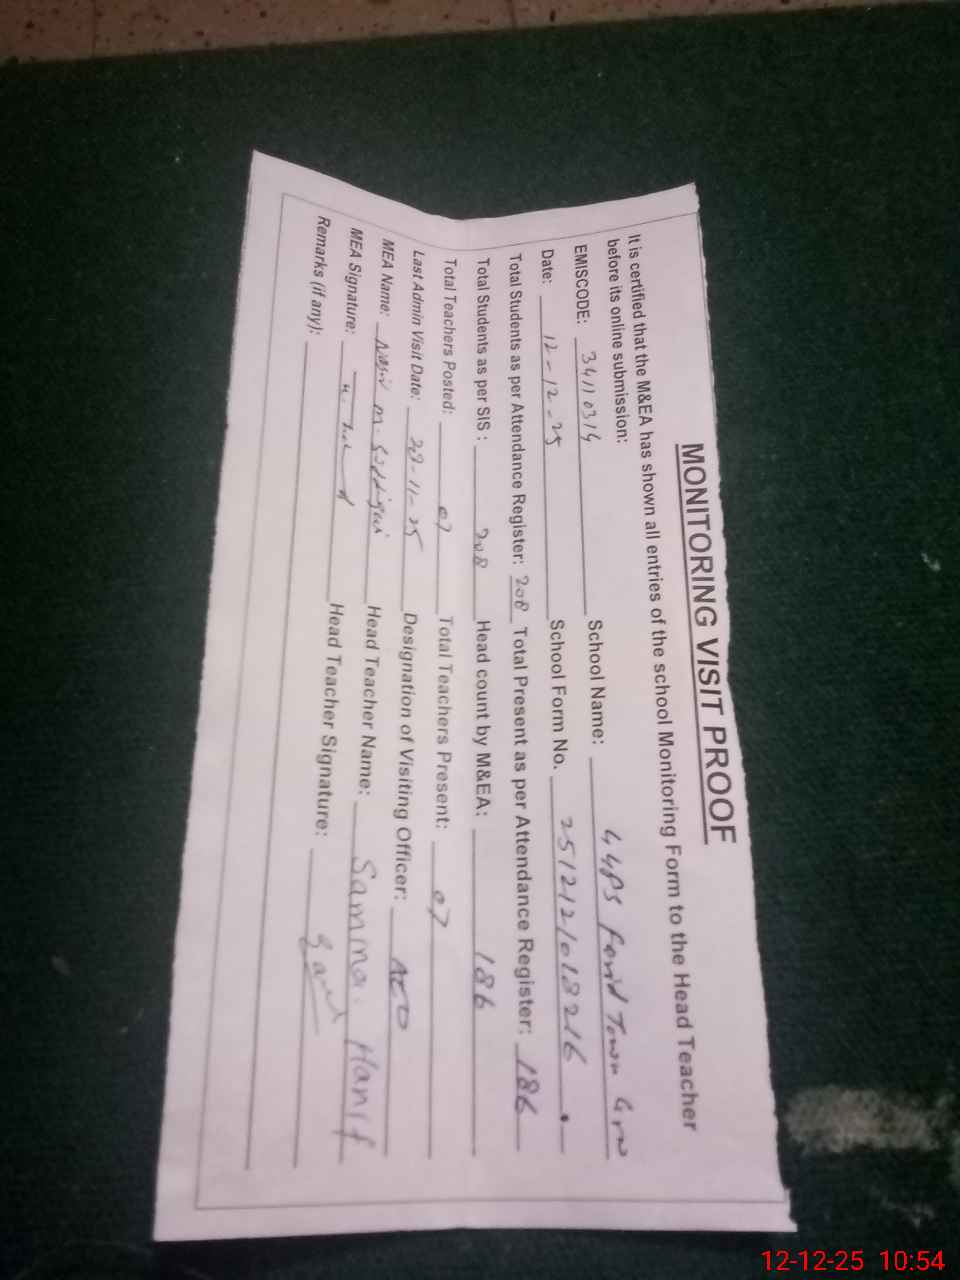 MONITORING VISIT PROOF
It is certified that the M&EA has shown all entries of the school Monitoring Form to the Head Teacher
before its online submission:
EMISCODE: 34110314 School Name: GGPS Farid Town Grw
Date: 12-12-25 School Form No. 251212/018216
Total Students as per Attendance Register: 208 Total Present as per Attendance Register: 186
Total Students as per SIS : 208 Head count by M&EA: 186
Total Teachers Posted: 07 Total Teachers Present: 07
Last Admin Visit Date: 29-11-25 Designation of Visiting Officer: AEO
MEA Name: Nasir M. Siddiqui Head Teacher Name: Samma Hanif
MEA Signature: Head Teacher Signature:
Remarks (if any):
12-12-25 10:54